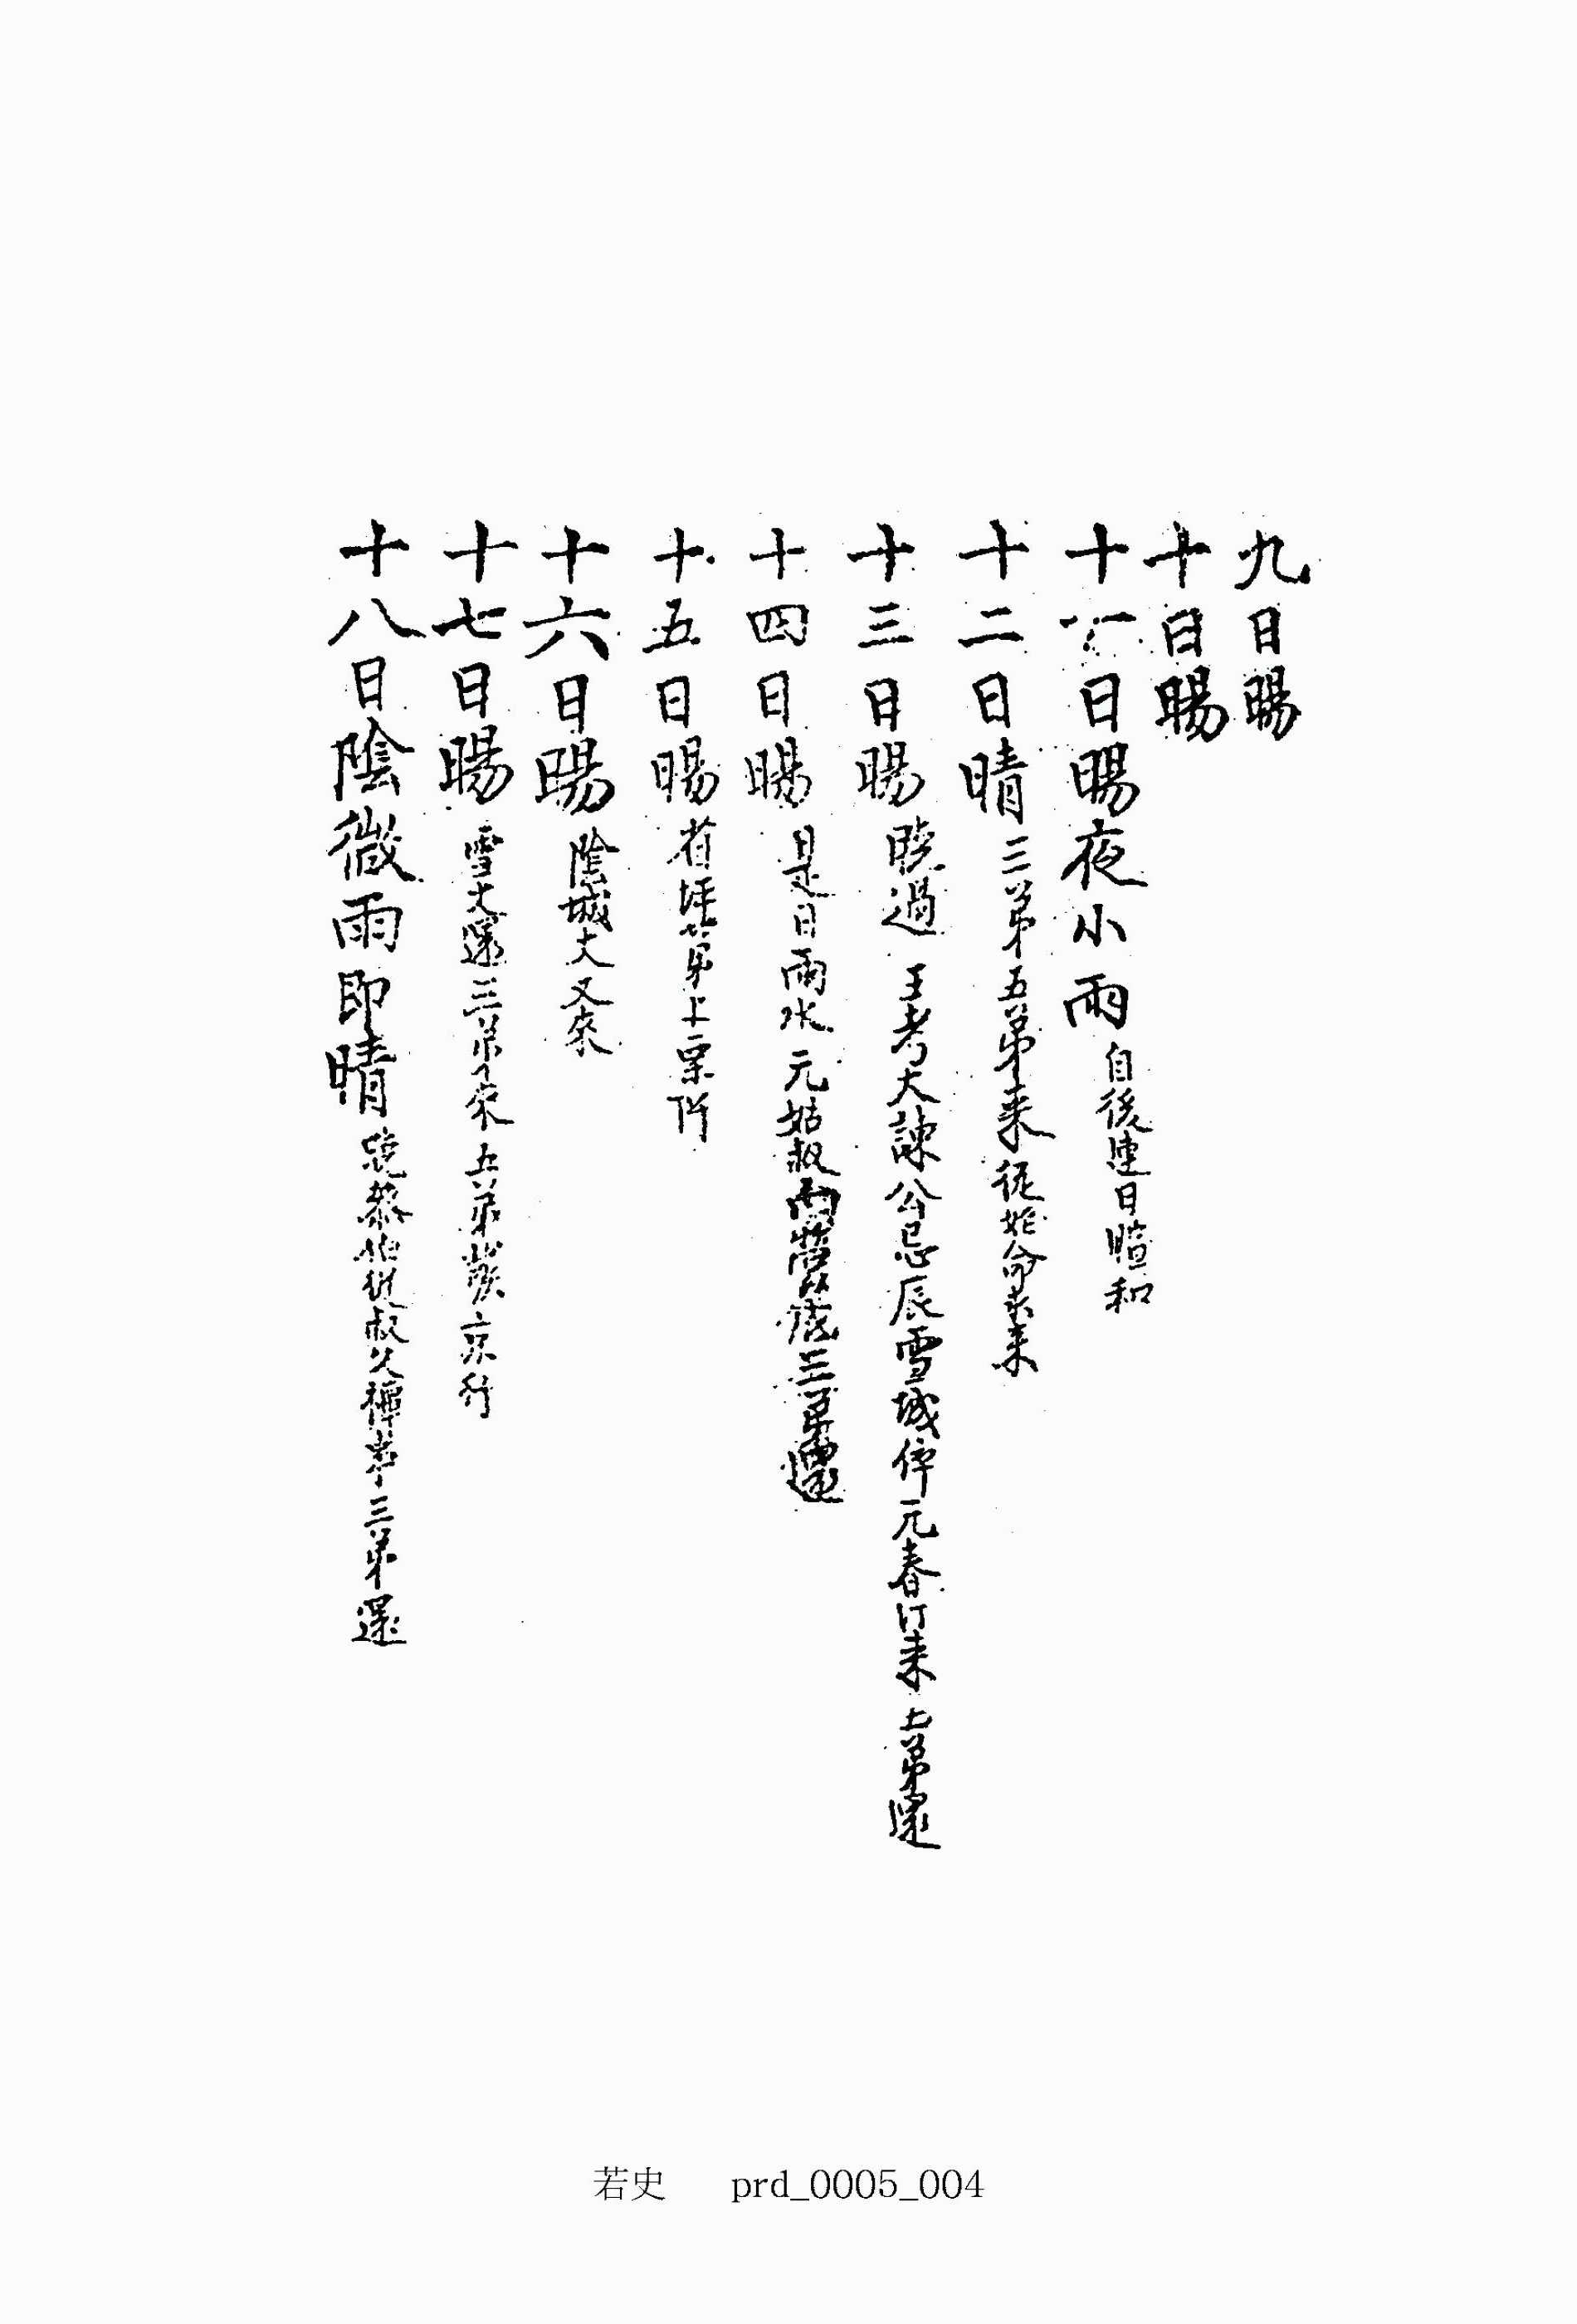 九日暘
十日暘
十一日暘夜小雨 自後連日暄和
十二日晴 三弟五弟来從姪命求来
十三日暘 晩過 王考大諫公忌辰雪城倅元春汀来 七弟還
十四日暘 是日雨水 元姑叔 三弟還
十五日暘 省坪弟上栗阡
十六日暘 陰城丈又來
十七日暘 雪丈還三弟來五弟發京行
十八日陰微雨即晴 晩參伯從叔父禫事三弟還
若史 prd_0005_004